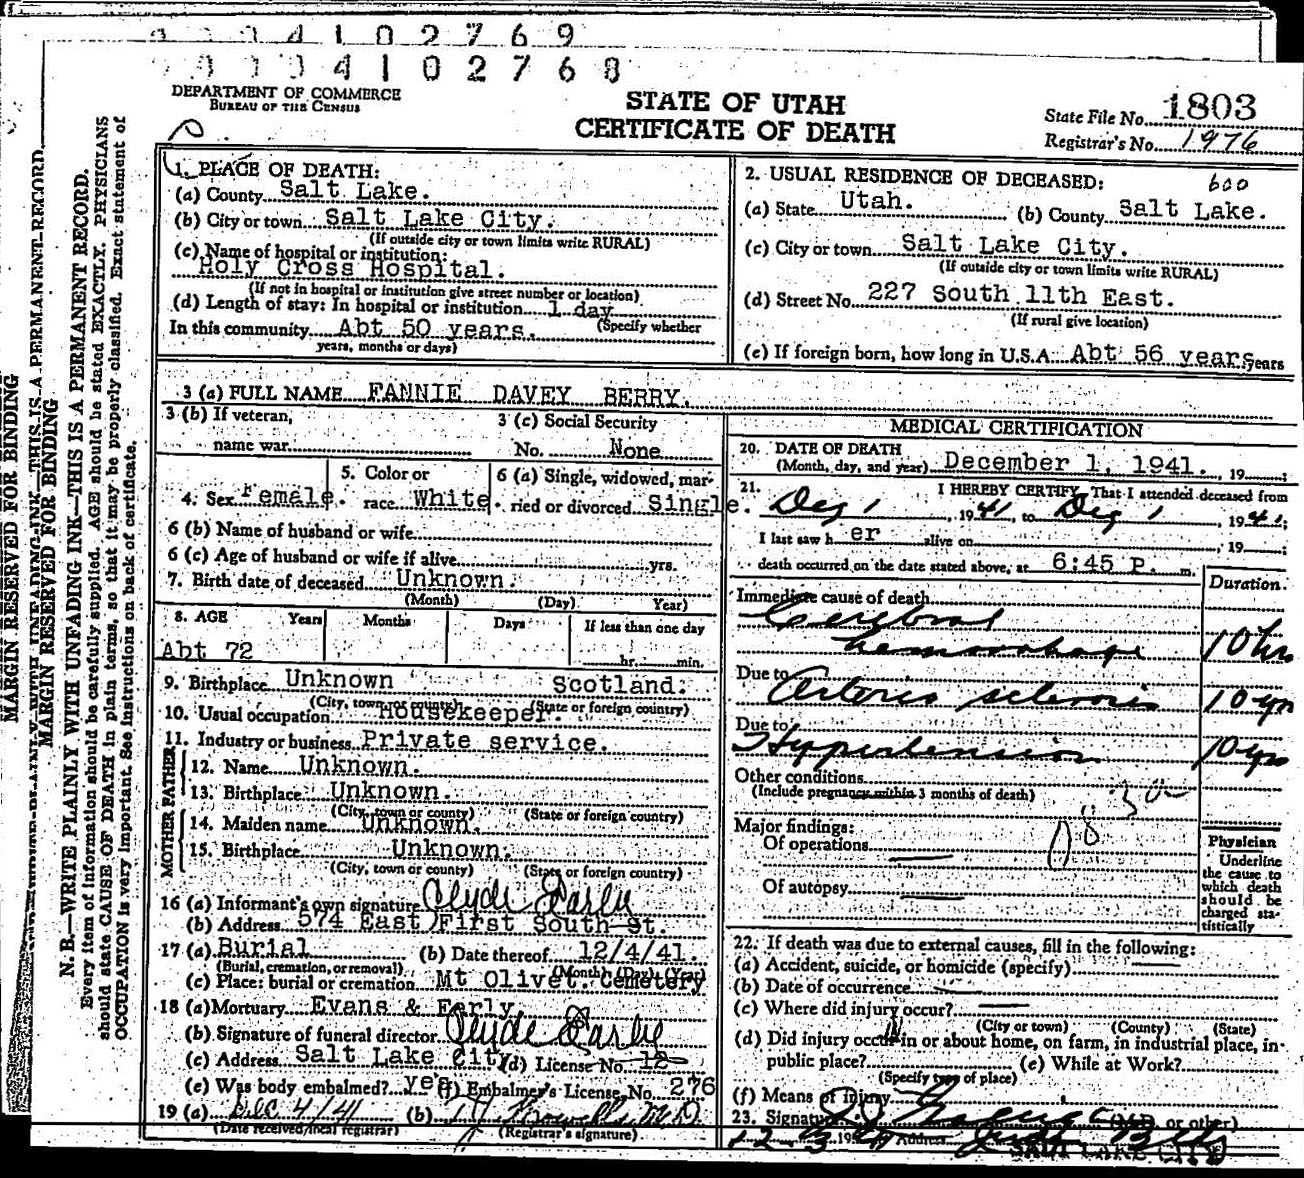 4 1 0 2 7 6 9
4 1 0 2 7 6 8
DEPARTMENT OF COMMERCE
BUREAU OF THE CENSUS
STATE OF UTAH
CERTIFICATE OF DEATH
State File No. 1803
Registrar's No. 1976
MARGIN RESERVED FOR BINDING
MARGIN RESERVED FOR BINDING
N. B.—WRITE PLAINLY WITH UNFADING INK—THIS IS A PERMANENT RECORD.
Every item of information should be carefully supplied. AGE should be stated EXACTLY. PHYSICIANS
should state CAUSE OF DEATH in plain terms, so that it may be properly classified. Exact statement of
OCCUPATION is very important. See instructions on back of certificate.
1. PLACE OF DEATH:
(a) County Salt Lake.
(b) City or town Salt Lake City.
(If outside city or town limits write RURAL)
(c) Name of hospital or institution:
Holy Cross Hospital.
(If not in hospital or institution give street number or location)
(d) Length of stay: In hospital or institution 1 day
(Specify whether
In this community Abt 50 years.
years, months or days)
2. USUAL RESIDENCE OF DECEASED: 600
(a) State Utah. (b) County Salt Lake.
(c) City or town Salt Lake City.
(If outside city or town limits write RURAL)
(d) Street No. 227 South 11th East.
(If rural give location)
(e) If foreign born, how long in U.S.A. Abt 56 years years
3 (a) FULL NAME FANNIE DAVEY BERRY.
3 (b) If veteran,
name war
3 (c) Social Security
No. None
4. Sex Female. 5. Color or race White. 6 (a) Single, widowed, married or divorced Single.
6 (b) Name of husband or wife
6 (c) Age of husband or wife if alive yrs.
7. Birth date of deceased Unknown.
(Month) (Day) Year)
8. AGE Years Months Days If less than one day
Abt 72 hr. min.
9. Birthplace Unknown Scotland.
(City, town or county) (State or foreign country)
10. Usual occupation Housekeeper.
11. Industry or business Private service.
FATHER
12. Name Unknown.
13. Birthplace Unknown.
(City, town or county) (State or foreign country)
MOTHER
14. Maiden name Unknown.
15. Birthplace Unknown.
(City, town or county) (State or foreign country)
16 (a) Informant's own signature Clyde Early
(b) Address 574 East First South St.
17 (a) Burial (b) Date thereof 12/4/41.
(Burial, cremation, or removal) (Month) (Day) (Year)
(c) Place: burial or cremation Mt Olivet Cemetery
18 (a) Mortuary Evans & Early
(b) Signature of funeral director Clyde Early
(c) Address Salt Lake City (d) License No. 12
(e) Was body embalmed? yes (f) Embalmer's License, No. 276
19 (a) Dec 4/41 (b) M.D.
(Date received local registrar) (Registrar's signature)
MEDICAL CERTIFICATION
20. DATE OF DEATH
(Month, day, and year) December 1, 1941. 19
21. I HEREBY CERTIFY, That I attended deceased from
Dec 1, 1941, to Dec 1, 1941;
I last saw h er alive on , 19 ;
death occurred on the date stated above, at 6:45 P. m.
Duration
Immediate cause of death
Cerebral
hemorrhage 10 hrs
Due to Arterio sclerosis 10 yrs
Due to
Hypertension 10 yrs
Other conditions
(Include pregnancy within 3 months of death)
Major findings:
Of operations
Of autopsy
Physician
Underline
the cause to
which death
should be
charged sta-
tistically
22. If death was due to external causes, fill in the following:
(a) Accident, suicide, or homicide (specify)
(b) Date of occurrence
(c) Where did injury occur?
(City or town) (County) (State)
(d) Did injury occur in or about home, on farm, in industrial place, in
public place? (e) While at Work?
(Specify type of place)
(f) Means of injury
23. Signature (M.D. or other)
12-3 1941 Address
SALT LAKE CITY